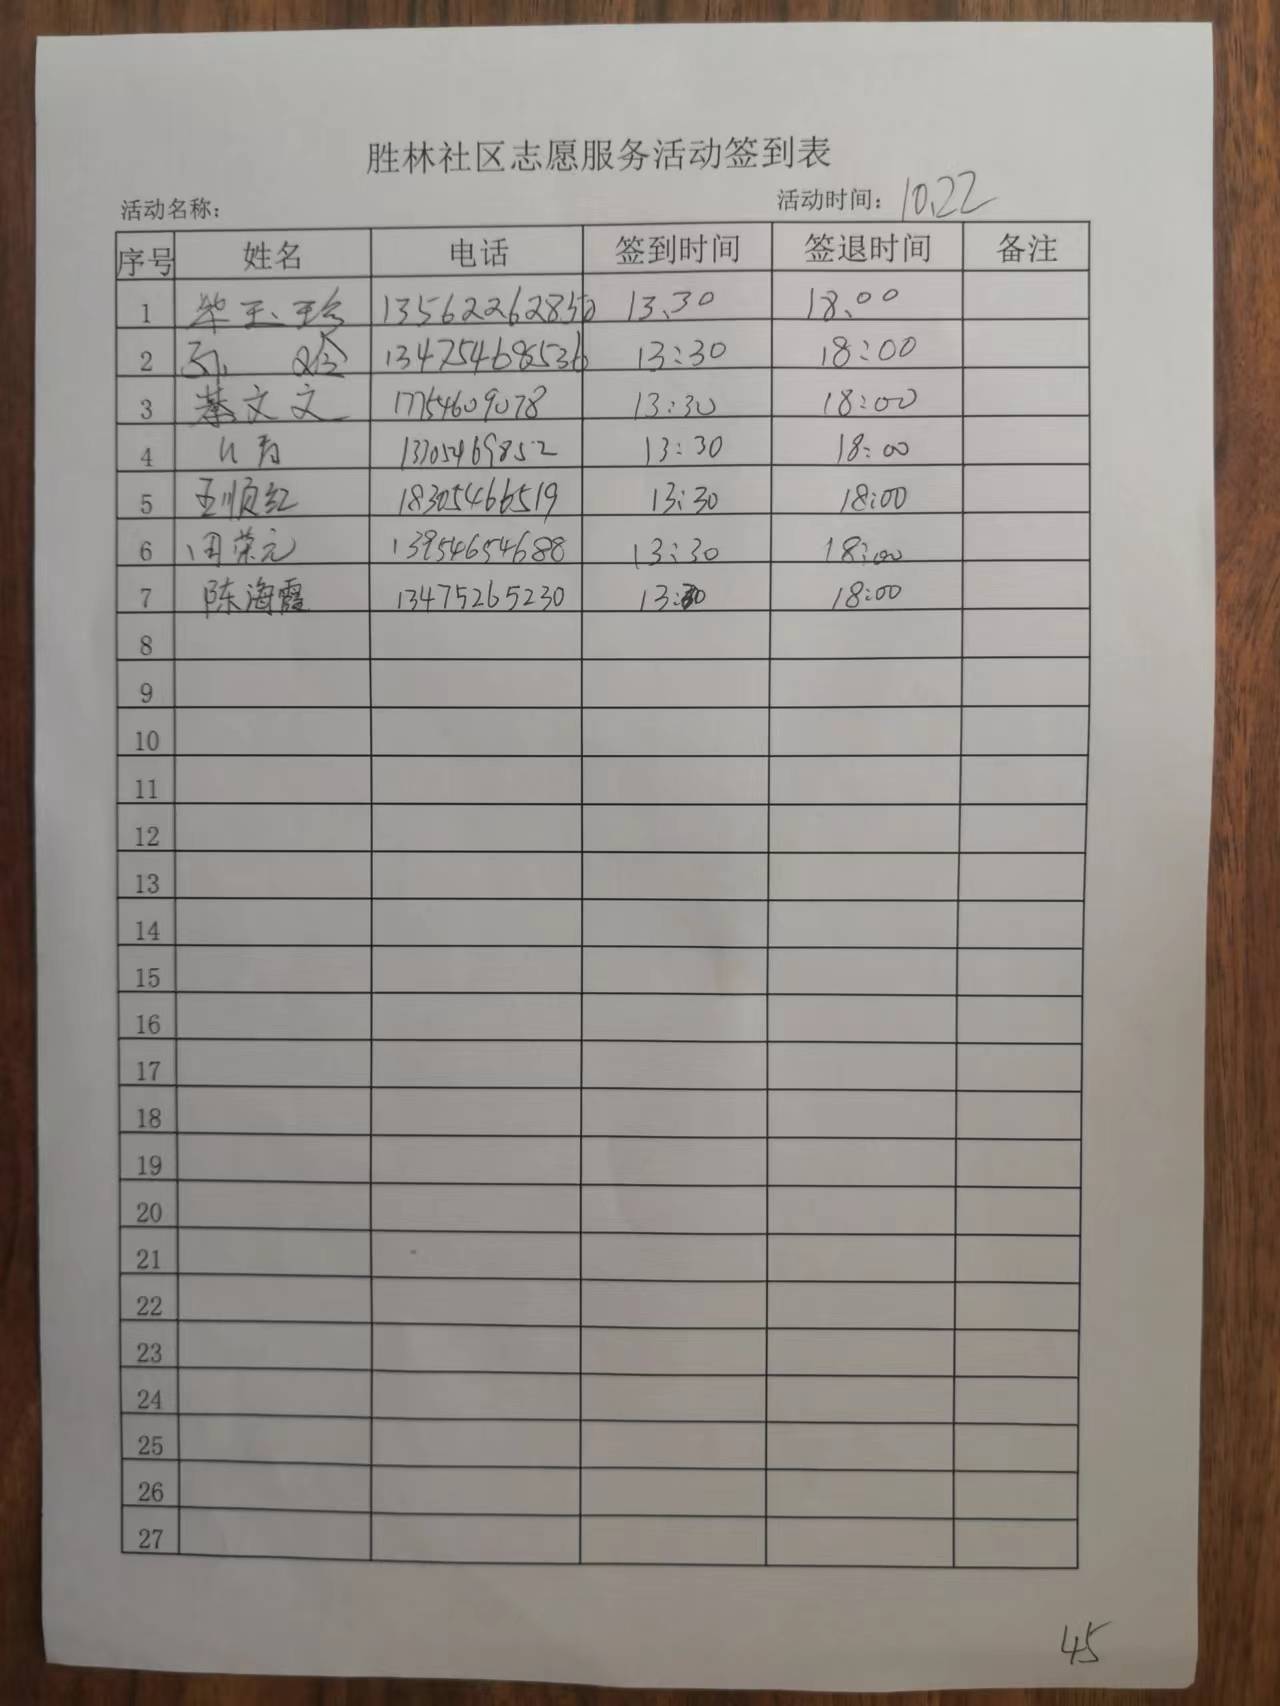 胜林社区志愿服务活动签到表
活动名称: 活动时间: 10.22
序号 姓名 电话 签到时间 签退时间 备注
1 柴玉珍 13562262850 13.30 18.00
2 孙 玲 13475468536 13:30 18:00
3 蔡文文 17754609078 13:30 18:00
4 13705469852 13:30 18:00
5 王顺红 18305466519 13:30 18:00
6 周荣元 13954654688 13:30 18:00
7 陈海霞 13475265230 13:30 18:00
8
9
10
11
12
13
14
15
16
17
18
19
20
21
22
23
24
25
26
27
45